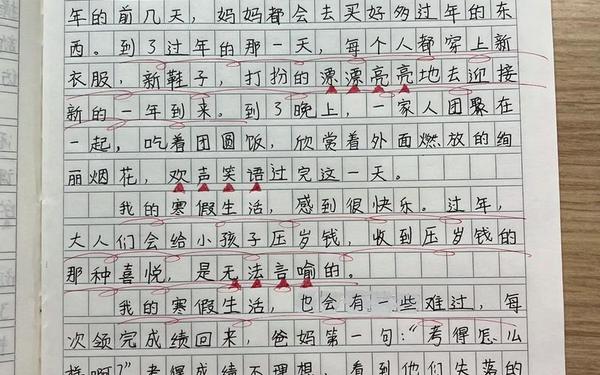 年的前几天，妈妈都会去买好多过年的东
西。到了过年的那一天，每个人都穿上新
衣服，新鞋子，打扮的漂漂亮亮地去迎接
新的一年到来。到了晚上，一家人团聚在
一起，吃着团圆饭，欣赏着外面燃放的绚
丽烟花，欢声笑语过完这一天。
我的寒假生活，感到很快乐。过年，
大人们会给小孩子压岁钱，收到压岁钱的
那种喜悦，是无法言喻的。
我的寒假生活，也会有一些难过，每
次领完成绩回来，爸妈第一句：“考得怎么
样啊？”考得成绩不理想，看到他们失落的